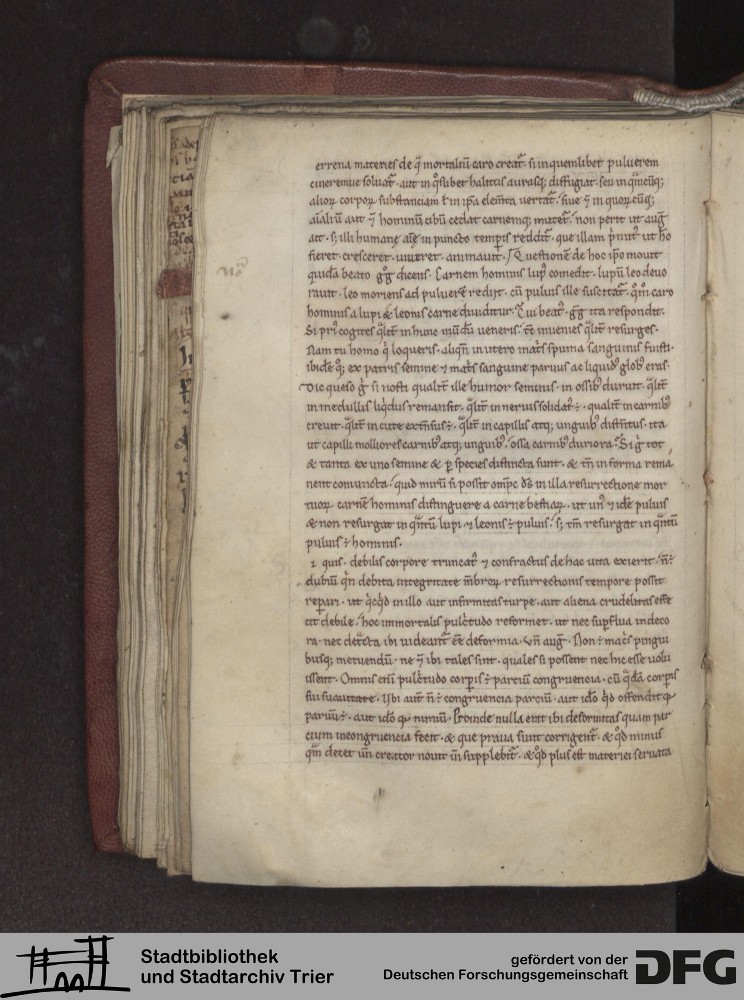 errena materies de q̄ mortaliū caro creat᷑. si in quemlibet puluerem
cineremue soluat᷑. aut in q̊slibet halitus aurasq; diffugiat. seu in q̄mcūq;
alioꝝ corpoꝝ substantiam ł in ip̄a elem̄ta uertat᷑. siue ⁊ in quoꝝcūq;
aīaliū aut ⁊ hominū cibū cedat carnemq; mutet᷑. non perit ut aug̃
ait. s; illi humanę aīę in puncto temp̄is reddit᷑. que illam p̓mit᷑ ut hō
fieret. cresceret. uiueret. animauit. Questionē de hoc ip̄o mouit
quidā beato g̃g̃ dicens. Carnem hominis lup᷒ comedit. lupū leo deuo
rauit. leo moriens ad puluerē redijt. cū puluis ille suscitat᷑. q̄m caro
hominis a lupi & leonis carne diuiditur. Cui beat᷒. g̃g̃ ita respondit.
Si pri᷒ cogites q̄lit᷑ in hunc mūdū ueneris. t̄c inuenies q̄lit᷑ resurges.
Nam tu homo q̓ loqueris. aliq̄n in utero mat̓s spuma sanguinis fuisti.
ibidē q; ex patris semine ⁊ mat̓s sanguine paruus ac liquid᷒ glob᷒ eras.
Dic queso g̊ si nosti qualit᷑ ille humor seminis. in ossib᷒ duruit. q̄lit᷑
in medullis liq̓dus remansit. q̄lit᷑ in neruis solidat᷒ ē. qualit᷑ in carnib᷒
creuit. q̄lit᷑ in cute extēsus ē. q̄lit᷑ in capillis atq; unguib᷒ distīctus. ita
ut capilli molliores carnib᷒ atq; unguib᷒. ossa carnib᷒ duriora. Si g̊ tot
& tanta ex uno semine & p̱ species distincta sunt. & tn̄ in forma rema
nent coniuncta. quid mirū si possit omp̄c d̄s in illa resurrectione mor
tuoꝝ carnē hominis distinguere a carne bestiaꝝ. ut un᷒ ⁊ idē puluis
& non resurgat in q̄ntū lupi ⁊ leonis ē puluis. s; tm̄ resurgat in q̄ntū
puluis ē hominis.
i quis. debilis corpore truncat᷒ ⁊ confractus de hac uita exierit. n̄ ē
dubiū q̓n debita integritate m̄broꝝ resurrectionis tempore possit
rep̱ari. ut q̓cq̓d in illo aut infirmitas turpe. aut aliena crudelitas effe
cit debile. hoc immortalis pulc̓tudo reformet. ut nec sup̱flua indeco
ra. nec det̓cta ibi uideant᷑ eē deformia. Vn̄ aug̃. Non ē mac̓s pingui
busq; metuendū. ne ⁊ ibi tales sint. quales si possent nec hic esse uolu
issent. Omnis eni᷑ pulc̓tudo corp̱is ē parciū congruencia. cū q̄dā corp̱is
sui suauitate. Vbi aut̄ n̄ ē congruencia parciū. aut id̊o q̓d offendit qꝫ
parū ē. aut id̊o qꝫ nimiū. Proinde nulla erit ibi deformitas quam par
cium incongruencia fecit. & que praua sunt corrigent᷑. & q̊d minus
q̄m decet un̄ creator nouit in̄ supplebit᷑. & q̊d plus est materiei seruata
Stadtbibliothek
und Stadtarchiv Trier
gefördert von der
Deutschen Forschungsgemeinschaft
DFG